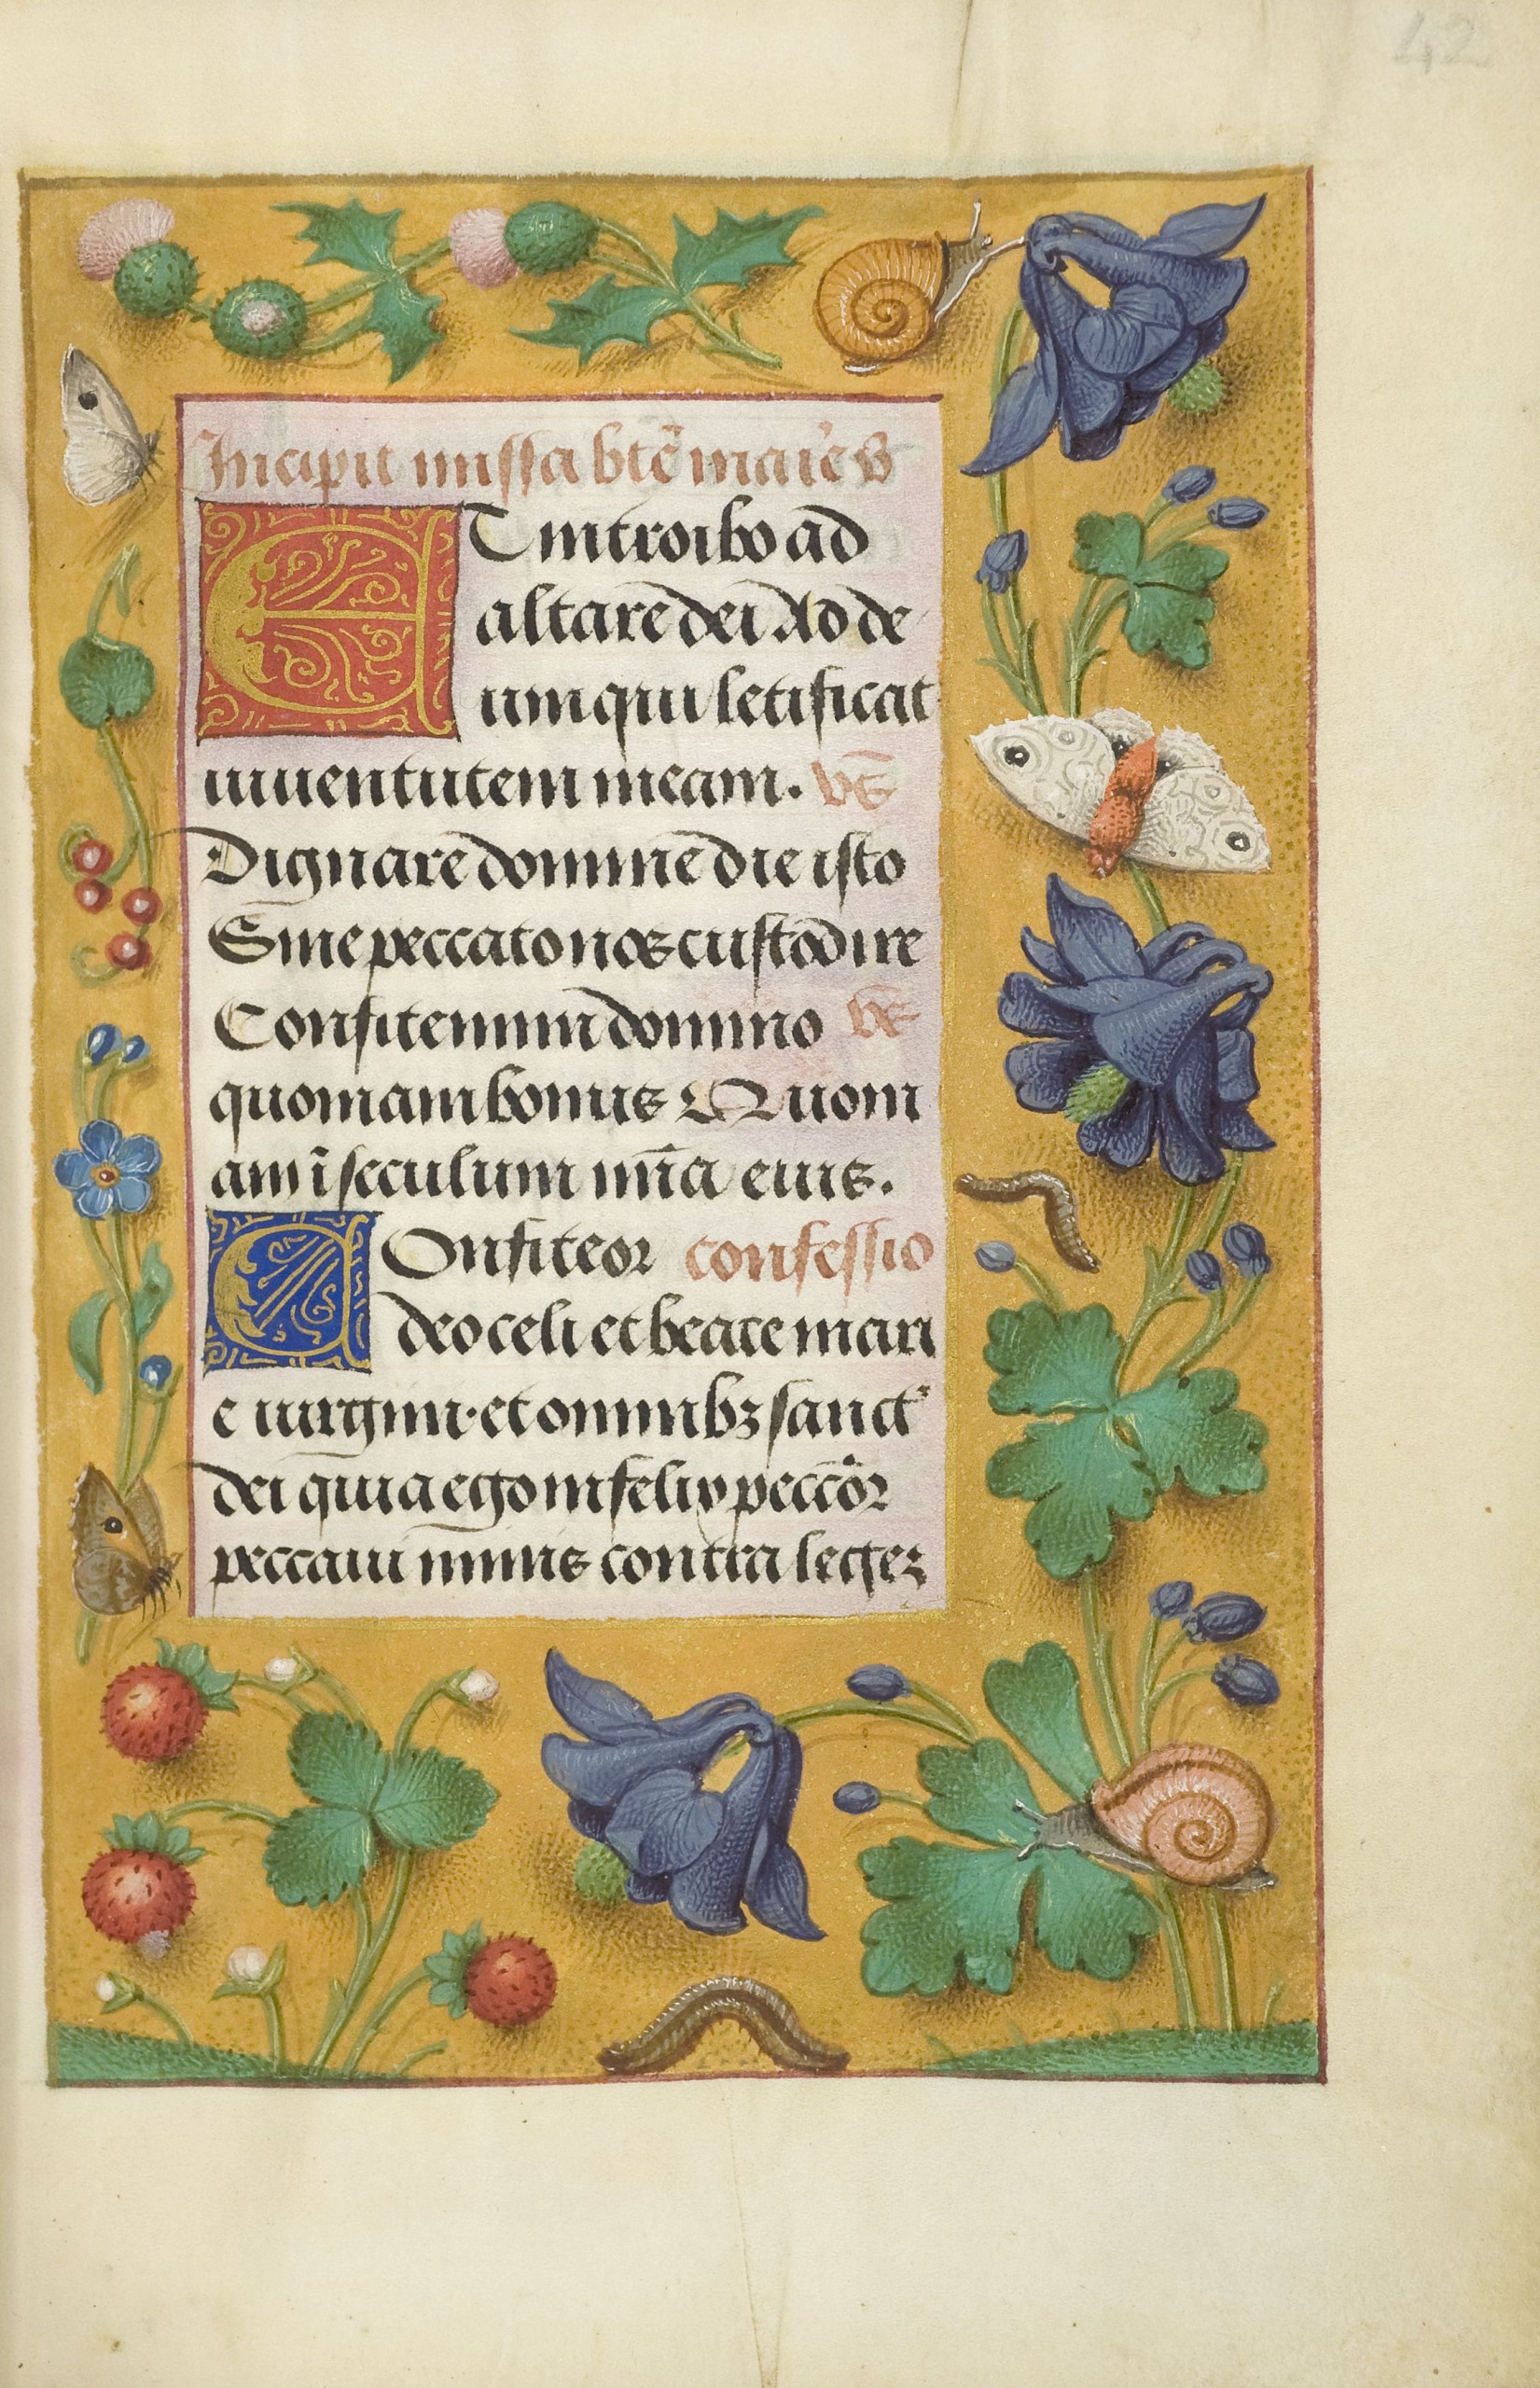 42
Incipit missa btē marie v̄
ET introibo ad
altare dei Ad de
um qui letificat
iuuentutem meam. vs̄
Dignare domine die isto
Sine peccato nos custodire
Confitemini domino
quoniam bonus Quoni
am ī seculum mīa eius.
COnfiteor confessio
deo celi et beate mari
e uirgini· et omnibꝫ sanct᾿
dei quia ego infelix peccōr
peccaui nimis contra legeꝫ